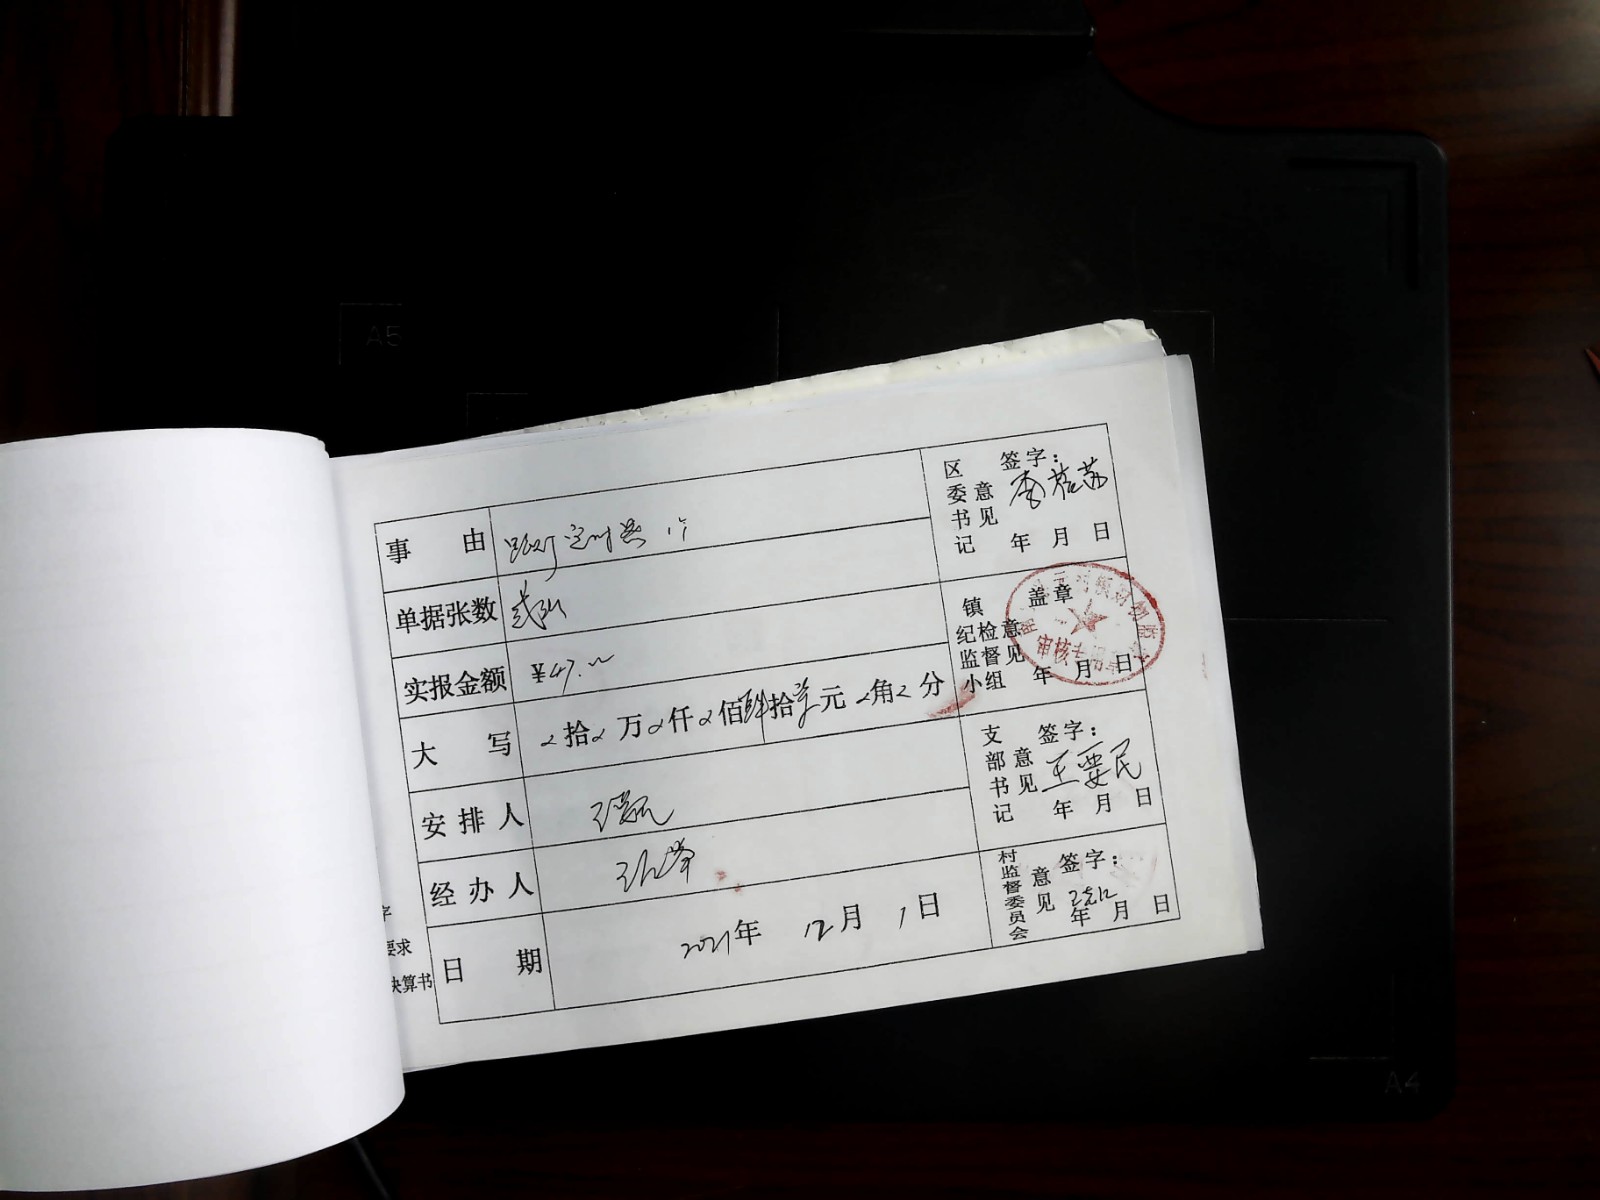 A5
事由 路灯定时器 1个
单据张数 贰张
实报金额 ¥47.00
大写 拾 万 仟 佰肆拾柒元 角 分
安排人
经办人
日期 2021年 12月 1日
区委书记意见 签字:
年 月 日
镇纪检监督小组意见 盖章
审核专用章
年 月 日
支部书记意见 签字:
王要民
年 月 日
村监督委员会意见 签字:
年 月 日
字
要求
决算书
A4